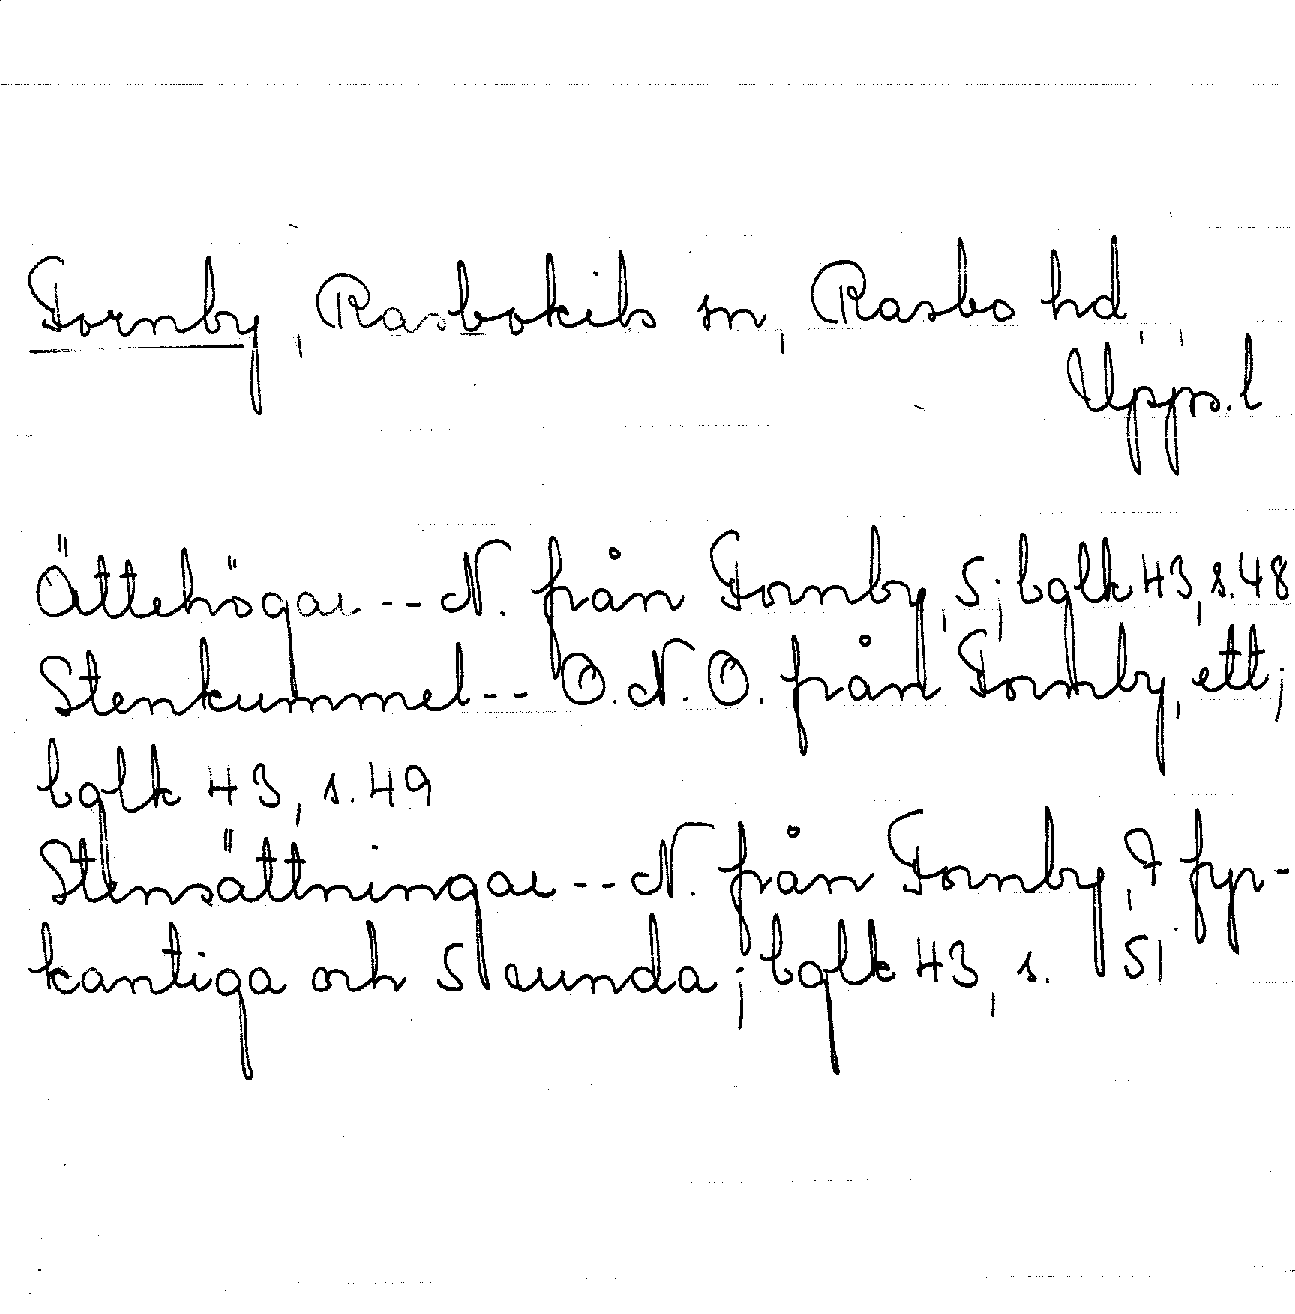 Fornby, Rasbokils sn, Rasbo hd,
Upps. l
Ättehögar -- N. från Fornby, 5; bglk 43, s. 48
Stenkummel -- O.N.O. från Fornby, ett;
bglk 43, s. 49
Stensättningar -- N. från Fornby, 7 fyr-
kantiga och 5 runda; bglk 43, s. 51